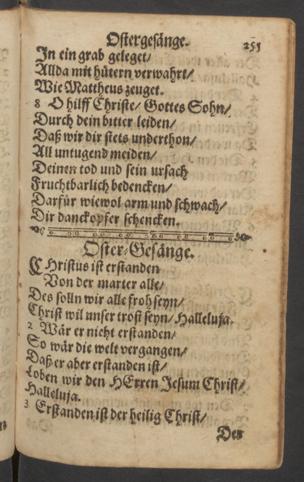 Ostergesänge. 255
In ein grab geleget/
Allda mit hütern verwahrt/
Wie Mattheus zeuget.
8 O hilff Christe/ Gottes Sohn/
Durch dein bitter leiden/
Daß wir dir stets underthon/
All untugend meiden/
Deinen tod und sein ursach
Fruchtbarlich bedencken/
Darfür wiewol arm und schwach/
Dir danckopfer schencken.
Oster-Gesänge.
CHristus ist erstanden
Von der marter alle/
Des solln wir alle froh seyn/
Christ wil unser trost seyn/ Halleluja.
2 Wär er nicht erstanden/
So wär die welt vergangen/
Daß er aber erstanden ist/
Loben wir den HErren Jesum Christ/
Halleluja.
3 Erstanden ist der heilig Christ/
Der